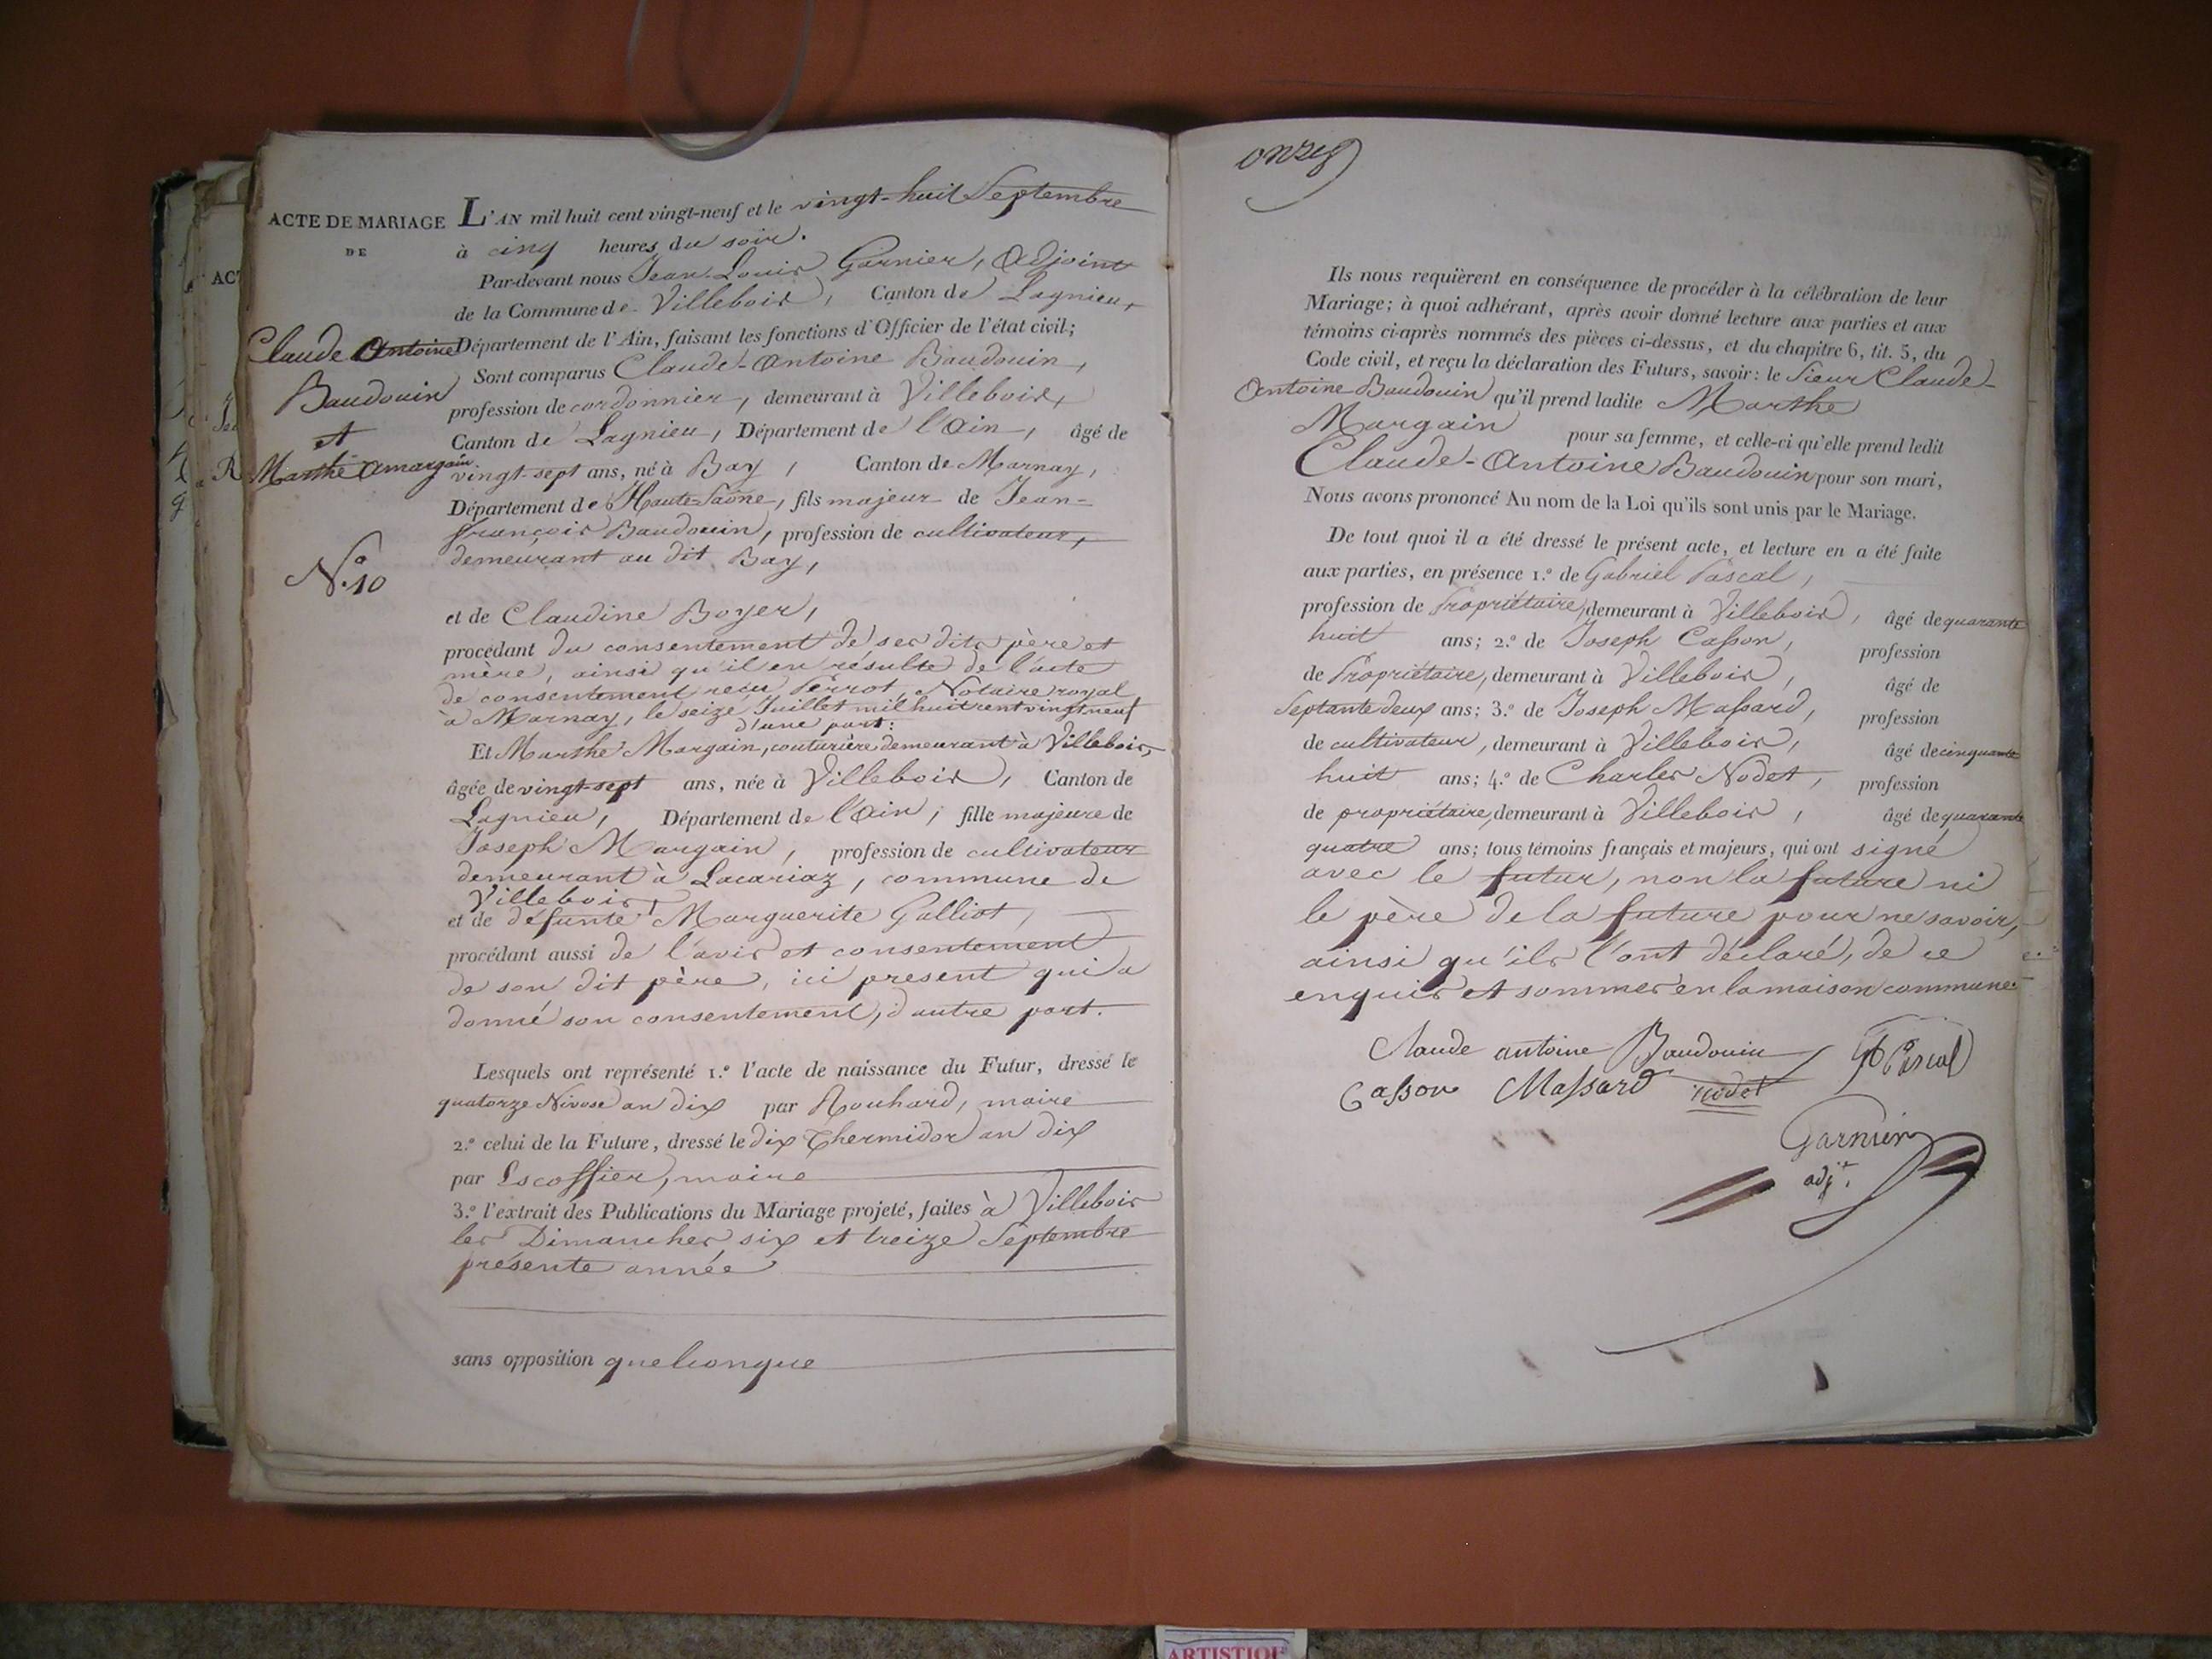 ACTE DE MARIAGE
DE
Claude Antoine
Baudouin
et
Marthe amargain
N.º 10
L'AN mil huit cent vingt-neuf et le vingt-huit Septembre
à cinq heures du soir.
Par-devant nous Jean Louis Garnier, Adjoint
de la Commune de Villebois, Canton de Lagnieu,
Département de l'Ain, faisant les fonctions d'Officier de l'état civil;
Sont comparus Claude-Antoine Baudouin,
profession de cordonnier, demeurant à Villebois,
Canton de Lagnieu, Département de l'Ain, âgé de
vingt-sept ans, né à Bay, Canton de Marnay,
Département de Haute-Saône, fils majeur de Jean-
françois Baudouin, profession de cultivateur,
demeurant au dit Bay,
et de Claudine Boyer,
procédant du consentement de ses dits père et
mère, ainsi qu'il en résulte de l'acte
de consentement reçu Perrot, Notaire royal
à Marnay, le seize Juillet mil huit cent vingt neuf
d'une part:
Et Marthe Margain, couturière demeurant à Villebois,
âgée de vingt-sept ans, née à Villebois, Canton de
Lagnieu, Département de l'Ain, fille majeure de
Joseph Margain, profession de cultivateur
demeurant à Lacariaz, commune de
Villebois,
et de défunte Marguerite Galliot,
procédant aussi de l'avis et consentement
de son dit père, ici present qui a
donné son consentement, d'autre part.
Lesquels ont représenté 1.º l'acte de naissance du Futur, dressé le
quatorze Nivose an dix par Rouhard, maire
2.º celui de la Future, dressé le dix Thermidor an dix
par Escoffier, maire
3.º l'extrait des Publications du Mariage projeté, faites à Villebois
les Dimanches six et treize Septembre
présente année
sans opposition quelconque
onze
Ils nous requièrent en conséquence de procéder à la célébration de leur
Mariage; à quoi adhérant, après avoir donné lecture aux parties et aux
témoins ci-après nommés des pièces ci-dessus, et du chapitre 6, tit. 5, du
Code civil, et reçu la déclaration des Futurs, savoir: le Sieur Claude-
Antoine Baudouin qu'il prend ladite Marthe
Margain pour sa femme, et celle-ci qu'elle prend ledit
Claude-Antoine Baudouin pour son mari,
Nous avons prononcé Au nom de la Loi qu'ils sont unis par le Mariage.
De tout quoi il a été dressé le présent acte, et lecture en a été faite
aux parties, en présence 1.º de Gabriel Pascal,
profession de Propriétaire, demeurant à Villebois, âgé de quarante
huit ans; 2.º de Joseph Casson, profession
de Propriétaire, demeurant à Villebois, âgé de
Septante deux ans; 3.º de Joseph Massard, profession
de cultivateur, demeurant à Villebois, âgé de cinquante
huit ans; 4.º de Charles Nodet, profession
de propriétaire, demeurant à Villebois, âgé de quarante
quatre ans; tous témoins français et majeurs, qui ont signé
avec le futur, non la future ni
le père de la future pour ne savoir,
ainsi qu'ils l'ont déclaré, de ce
enquis et sommés en la maison commune.
Claude antoine Baudouin Gb Pascal
Casson Massard nodet
Garnier
adj.t
AC
ARTISTIQUE